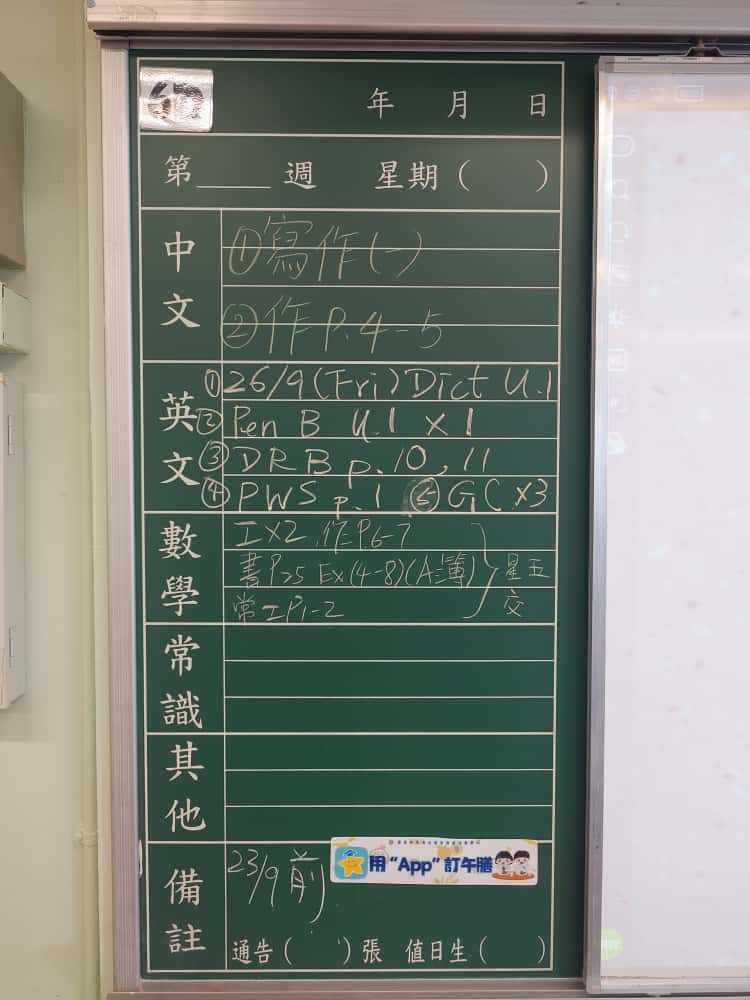 6D
年 月 日
第____週 星期( )
中文
①寫作(一)
②作P.4-5
英文
①26/9(Fri)Dict U.1
②Pen B U.1 x 1
③DRB p.10,11
④PWS p.1 ⑤GC x3
數學
工x2,作P.6-7
書P25 Ex(4-8)(A簿)
常工P1-2
星五交
常識
其他
備註
23/9前
用“App”訂午膳
通告( )張 值日生( )